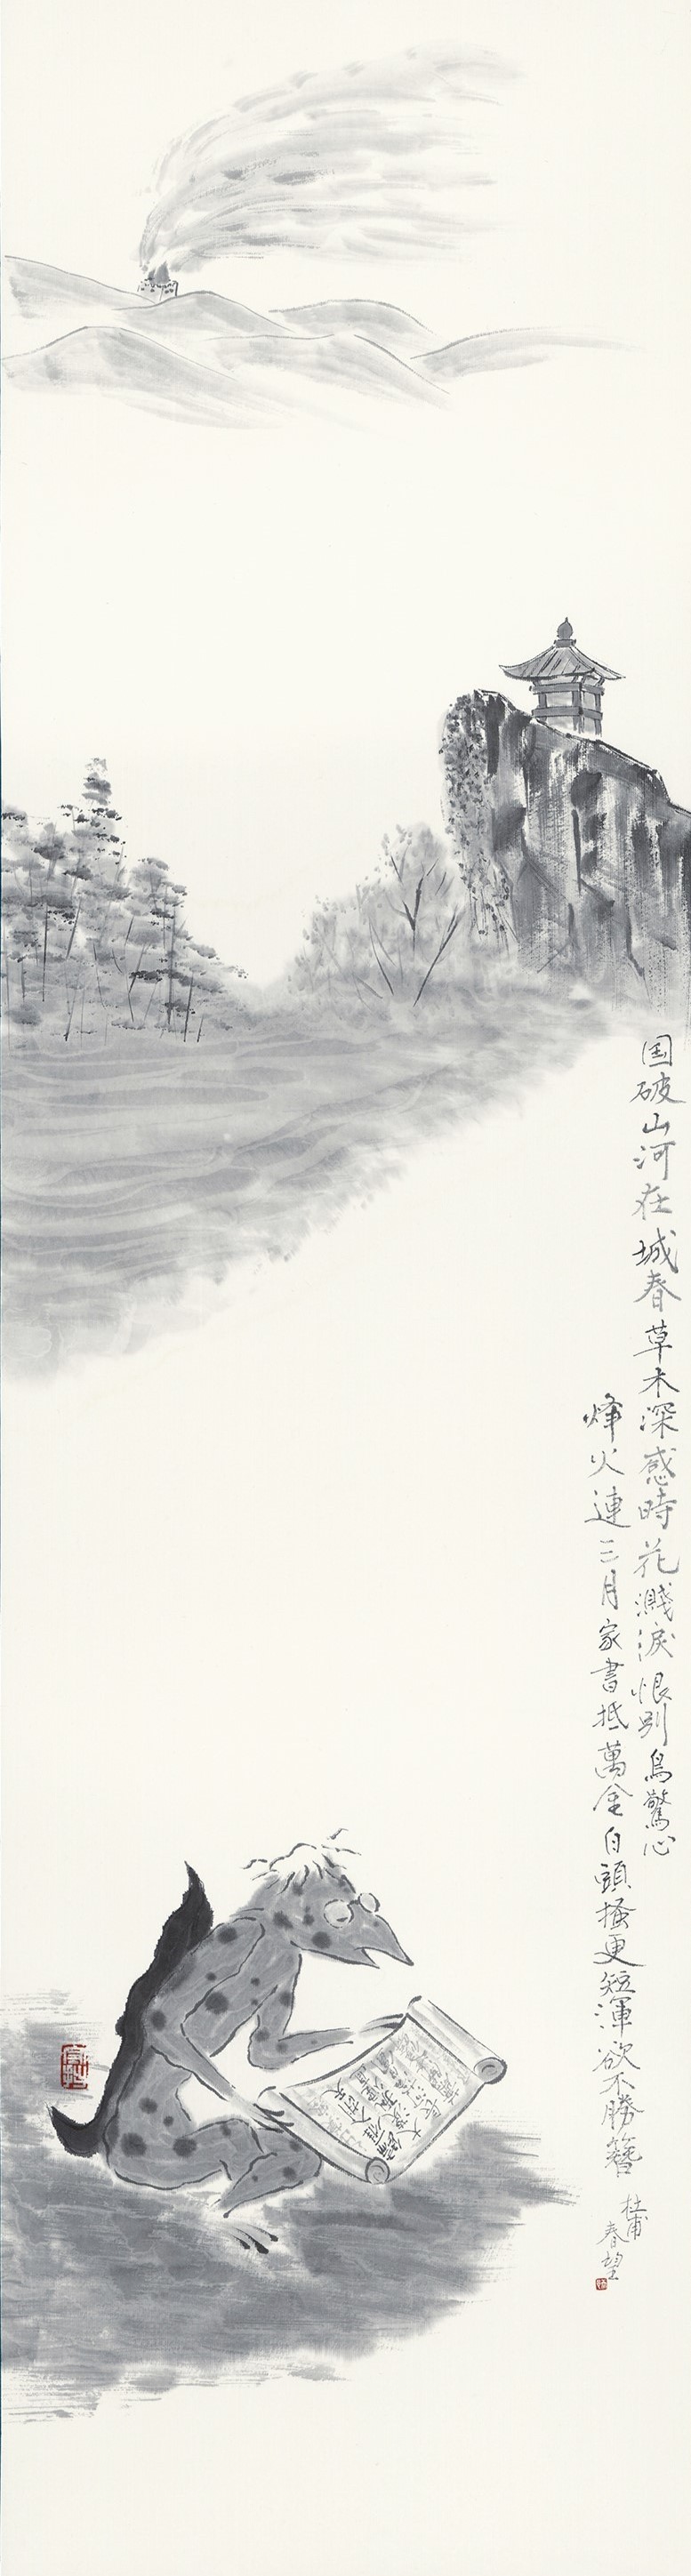 国破山河在城春草木深感時花濺淚恨別鳥驚心
烽火連三月家書抵萬金白頭搔更短渾欲不勝簪
杜甫
春望